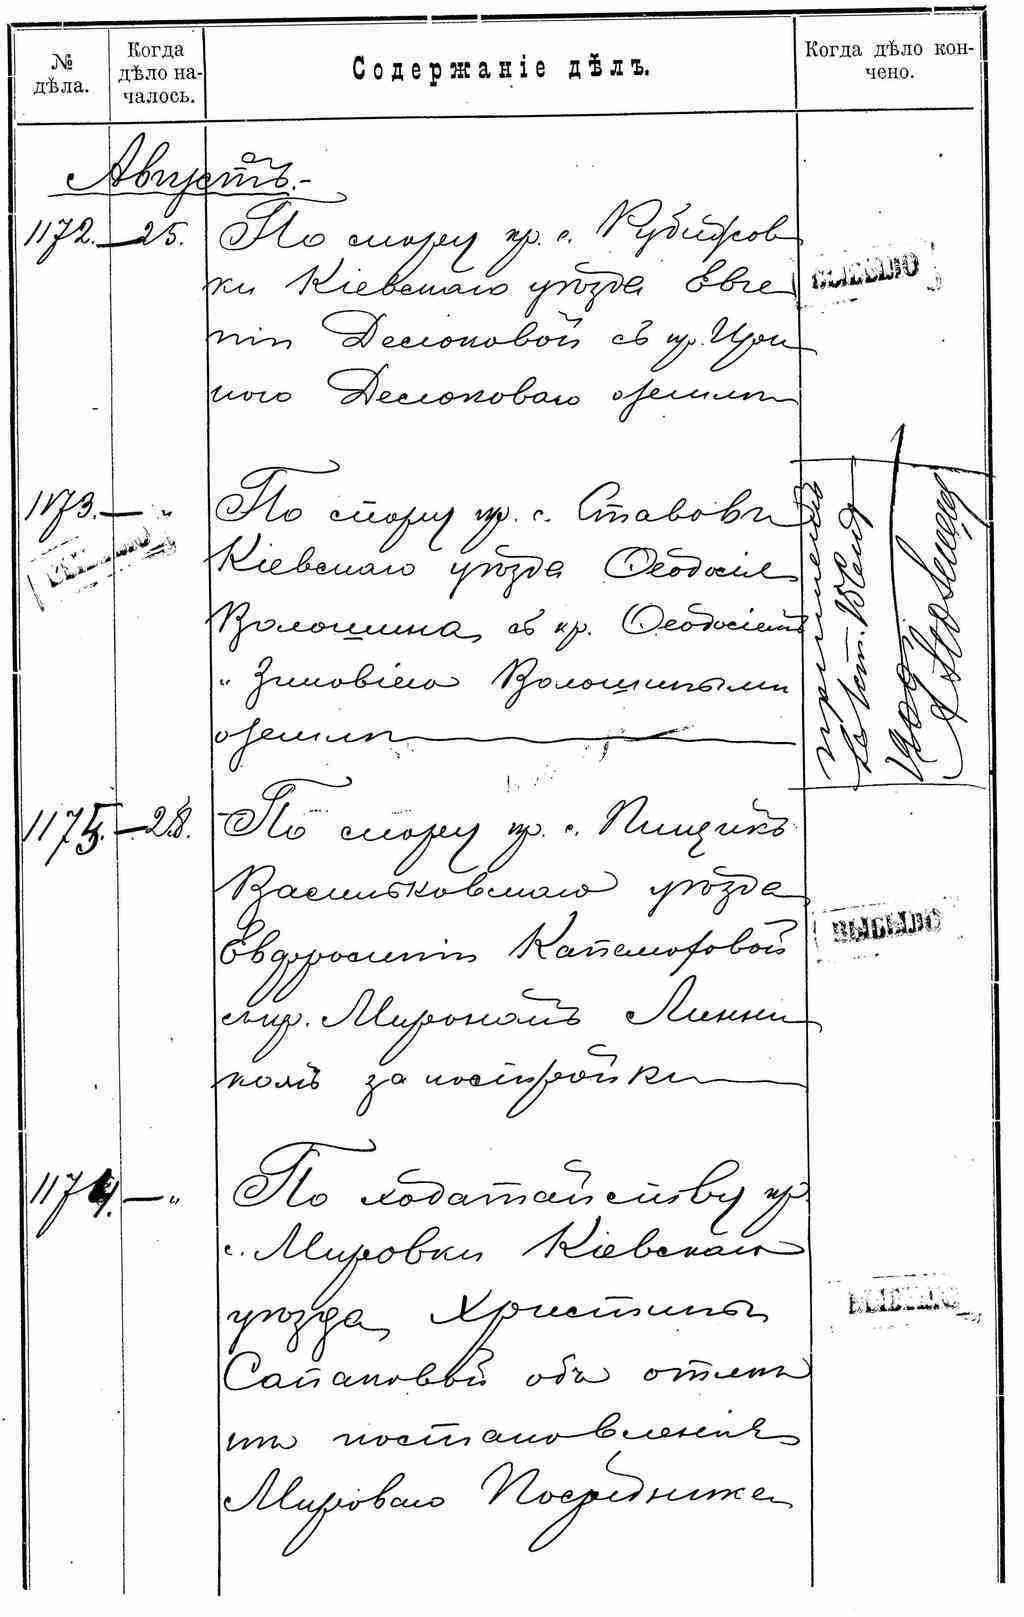 № дѣла.
Когда дѣло на-
чалось.
Содержаніе дѣлъ.
Когда дѣло кон-
чено.
Августъ.-
1172. — 25. По спору кр. с.
ки Кіевскаго уѣзда Евге
ніи Деслюковой съ кр.
Деслюковаго о землѣ
1173. — „ По спору кр. с. Ставовъ
Кіевскаго уѣзда Ѳеодосія
Волошина съ кр. Ѳеодосіемъ
„ Зиновіемъ Волошиными
о землѣ
1175. — 28. По спору кр. с. Пищикъ
Васильковскаго уѣзда
Евфросиніи
съ кр. Мирономъ Линни
комъ за постройки
1174. — „ По ходатайству кр.
с. Мировки Кіевскаго
уѣзда Христины
Сапаковой объ отмѣн
ѣ постановленія
Мироваго Посредника
ВЫБЫЛО
ВЫБЫЛО
ВЫБЫЛО
ВЫБЫЛО